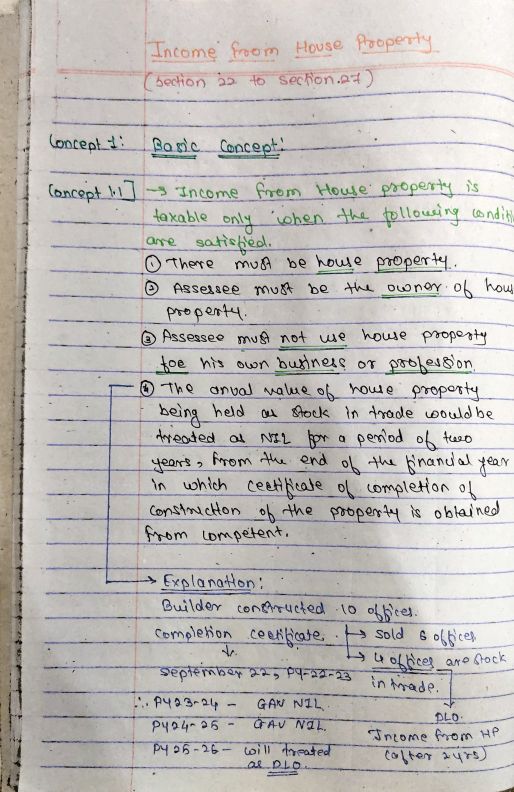 Income from House Property
(Section 22 to Section.27)
Concept 1: Basic Concept:
Concept 1.1] → Income from House property is
taxable only when the following conditi
are satisfied.
① There must be house property.
② Assessee must be the owner of hou
property.
③ Assessee must not use house property
foe his own business or profession
④ The anual value of house property
being held as stock in trade would be
treated as NIL for a period of two
years, from the end of the financial year
in which certificate of completion of
construction of the property is obtained
from competent.
→ Explanation:
Builder constructed 10 offices.
Completion certificate. → sold 6 offices
↓ → 4 offices are stock
September 22, PY-22-23 in trade.
∴ PY23-24 - GAV NIL.
PY24-25 - GAV NIL. DLO.
PY25-26 - will treated Income from HP
as DLO. (after 2yrs)